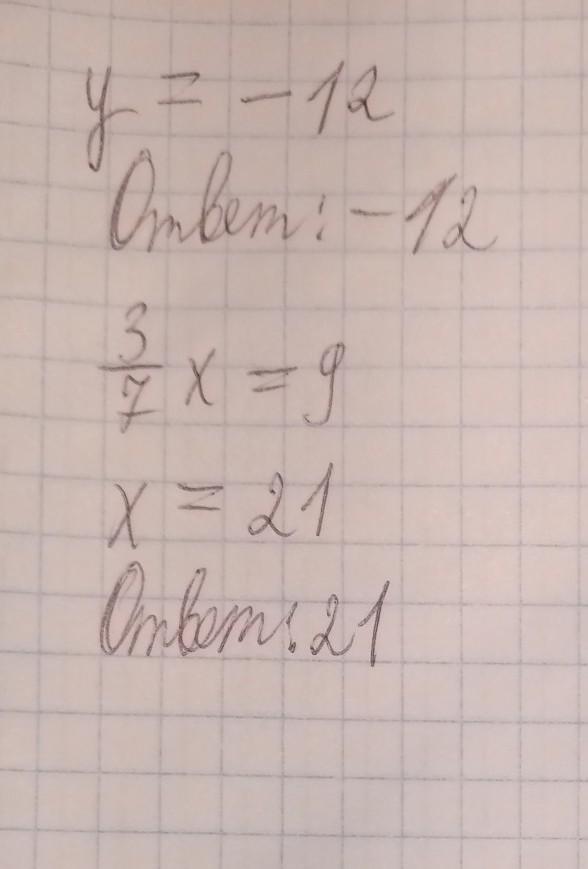 y = -12
Ответ: -12
3/7 x = 9
x = 21
Ответ: 21